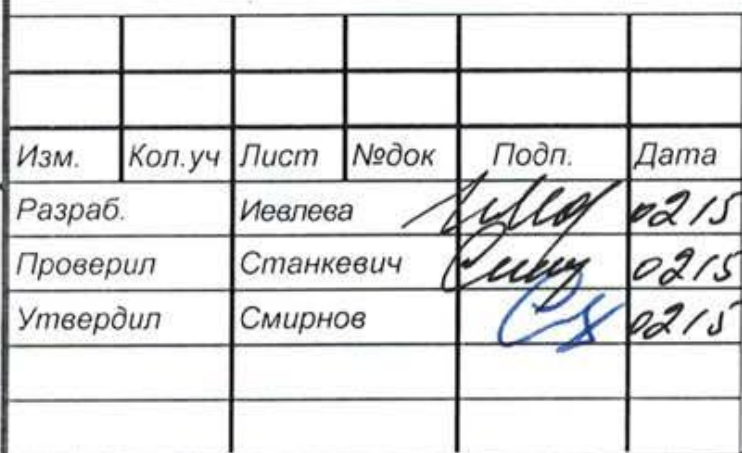 Изм. Кол.уч Лист №док Подп. Дата
Разраб. Иевлева 0215
Проверил Станкевич 0215
Утвердил Смирнов 0215